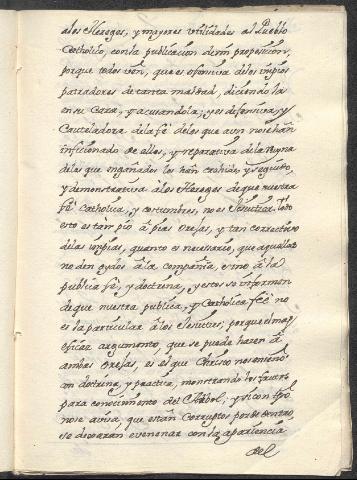 a los Hereges, y mayores utilidades al Pueblo
Catholico, con la publicacion de mi proposicion,
porque todos ven, que es ofensiva de los impios
de tanta maldad, diciendola
en su Cara, y acusandola; y es defensiva, y
Cauteladora de la fè de los que aun no se hàn
inficionado de ellos, y reparativa de la Ruyna
de los que engañados los hàn crehido, y seguido,
y demonstrativa à los Hereges de que nuestra
Fè Catholica, y costumbres, no es Jesuitica. Todo
esto es tàn pio à pias Orejas, y tan correctivo
de las impias, quanto es necessario, que aquellos
no den oydos à la compañia, sino à la
publica fè, y doctrina, y estos se informen
de que nuestra publica, y Catholica feè no
es la particular à los Jesuitas; porque el mas
eficàz argumento, que se puede hacer à
ambas Orejas, es el que Christo nos enseñò
con doctrina, y practica, monstrando los frutos
para conocimiento del Arbol; y si con tpõ
no se avisa, que estàn Corruptos por de dentro,
se dexaràn evenenar con la apariencia
del